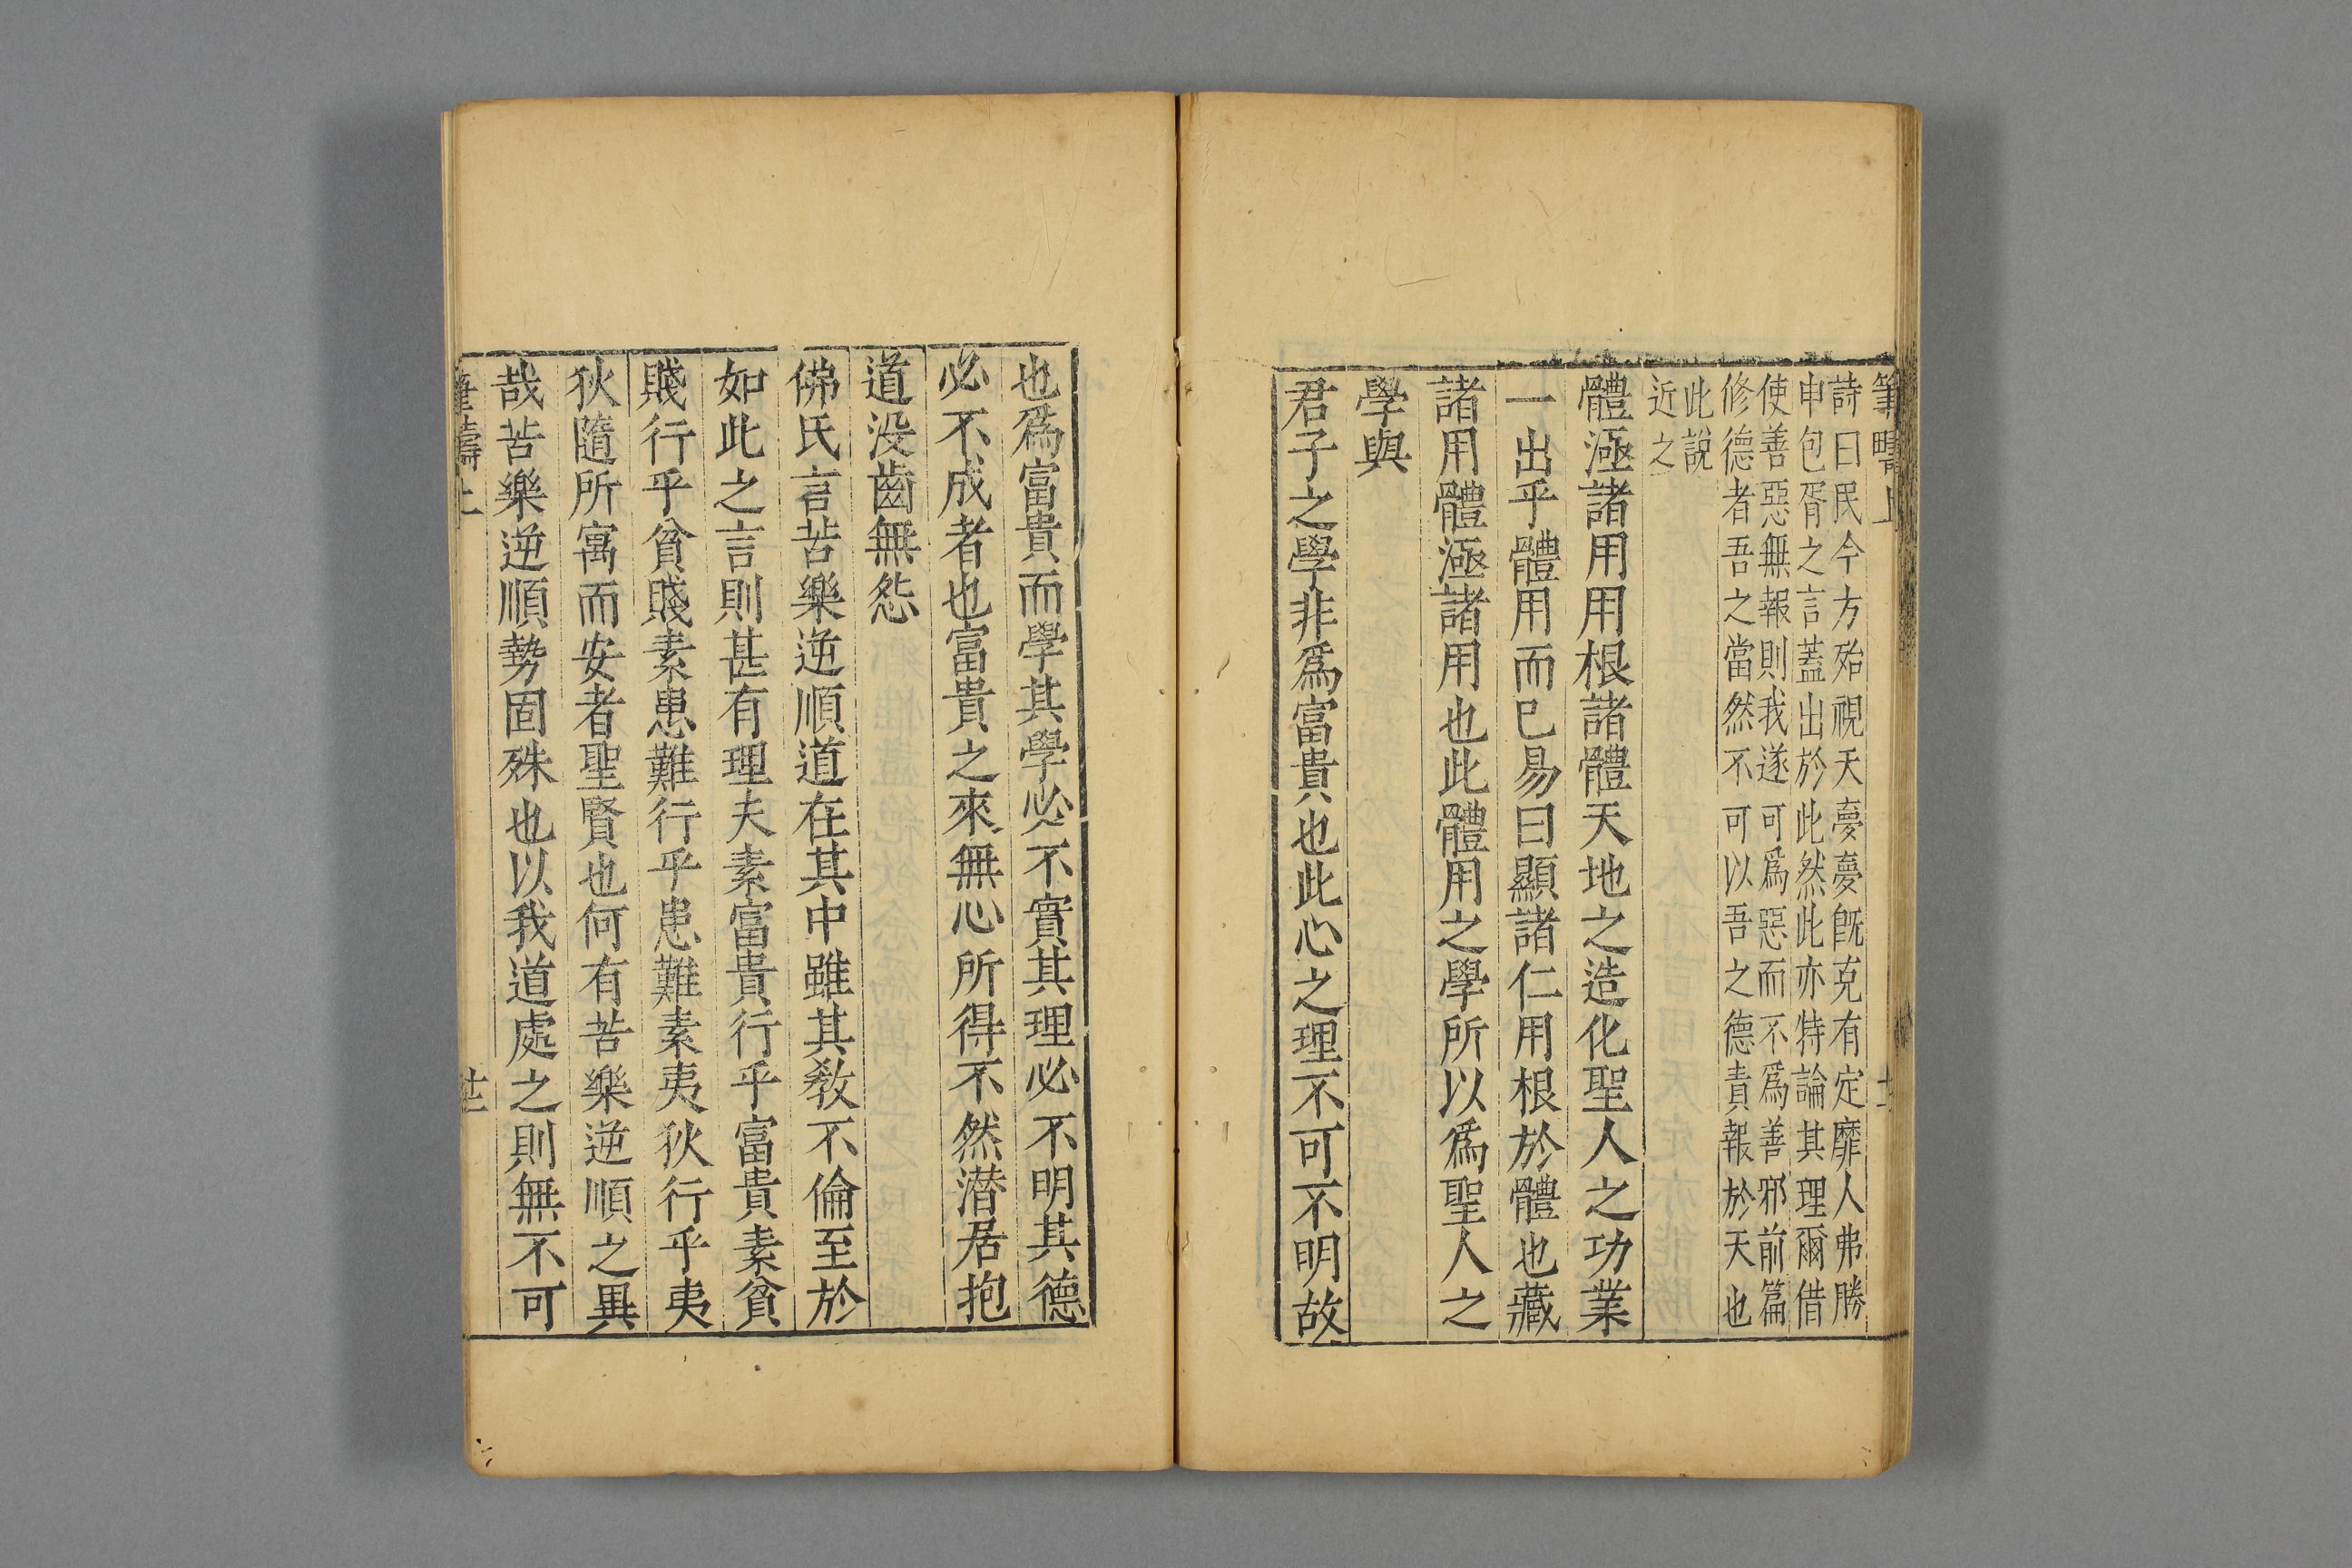 筆疇上
詩曰民今方殆視天夢夢旣克有定靡人弗勝
申包胥之言蓋出於此然此亦特論其理爾借
使善惡無報則我遂可爲惡而不爲善邪前篇
修德者吾之當然不可以吾之德責報於天也
此說
近之
體極諸用用根諸體天地之造化聖人之功業
一出乎體用而已易曰顯諸仁用根於體也藏
諸用體極諸用也此體用之學所以爲聖人之
學與
君子之學非爲富貴也此心之理不可不明故
也爲富貴而學其學必不實其理必不明其德
必不成者也富貴之來無心所得不然潜居抱
道没齒無怨
佛氏言苦樂逆順道在其中雖其敎不倫至於
如此之言則甚有理夫素富貴行乎富貴素貧
賤行乎貧賤素患難行乎患難素夷狄行乎夷
狄隨所寓而安者聖賢也何有苦樂逆順之異
哉苦樂逆順勢固殊也以我道處之則無不可
筆疇上